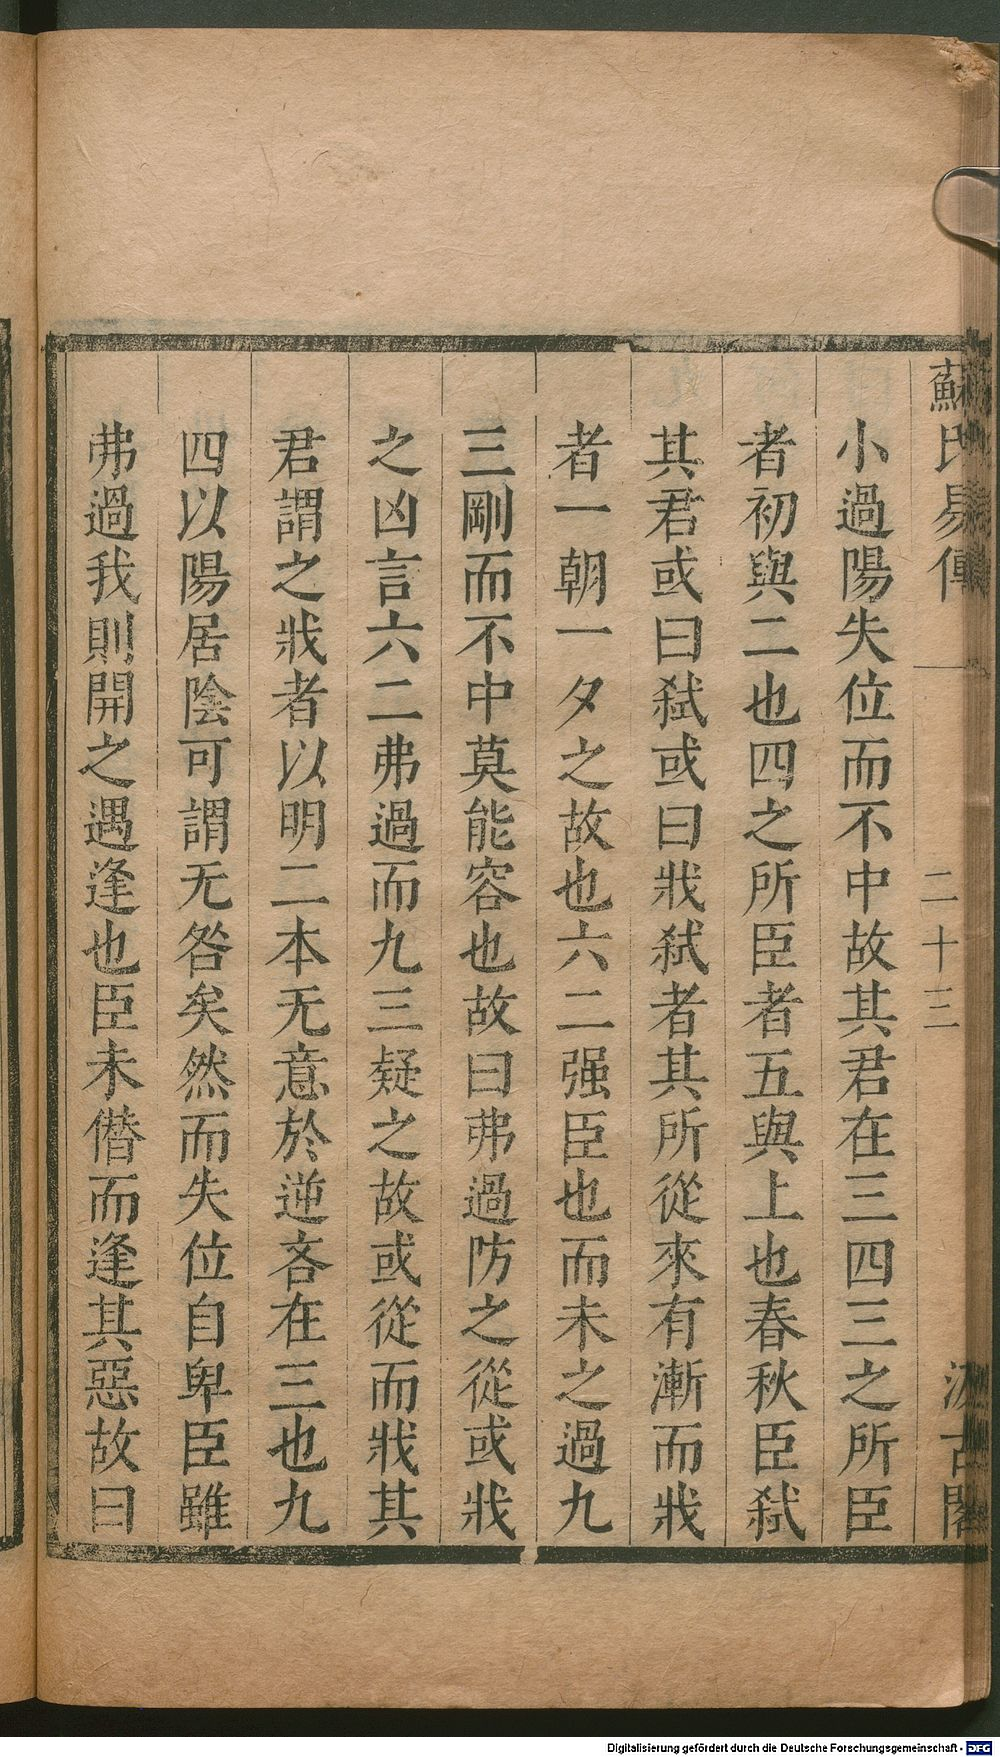 蘇氏易傳 二十三 汲古閣
小過陽失位而不中故其君在三四三之所臣
者初與二也四之所臣者五與上也春秋臣弑
其君或曰弑或曰戕弑者其所從來有漸而戕
者一朝一夕之故也六二强臣也而未之過九
三剛而不中莫能容也故曰弗過防之從或戕
之凶言六二弗過而九三疑之故或從而戕其
君謂之戕者以明二本无意於逆吝在三也九
四以陽居陰可謂无咎矣然而失位自卑臣雖
弗過我則開之遇逢也臣未僣而逢其惡故曰
Digitalisierung gefördert durch die Deutsche Forschungsgemeinschaft - DFG